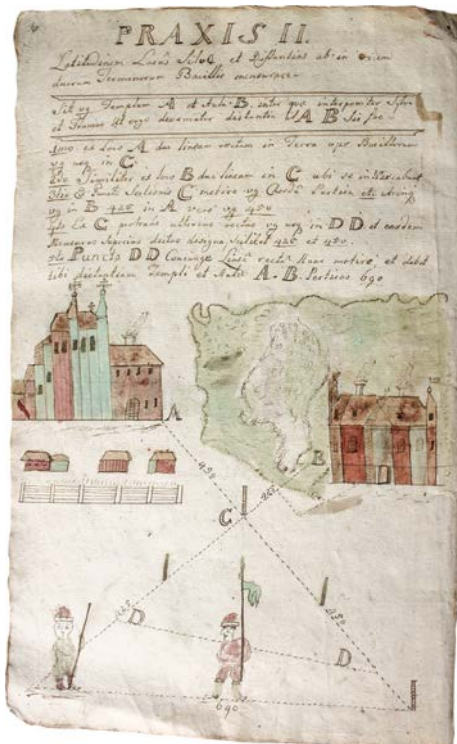 PRAXIS II.
Latitudinem Lacus Silvæ et Distantias ab in
duorum Terminorum Bacillis mensurare
Sit vg Templum A et Aula B. inter quæ interponitur Sylva
et ergo devometer distantia A B Sic fac
1mo ex Loco A duc lineam rectam in Terra ope Bacillorum
vg usq in C.
2do Similiter ex loco B duc lineam in C ubi se
3tio C metire vg
vg in B 425 in A vero vg 450
4to Ex C protrahe ulterius rectas vg usq in D D. et easdem
Mensuras Superius dictas designa scilicet 425 et 450.
5to Puncta D D Coniunge Linea recta Hanc metire, et dabit
tibi distantiam Templi et Aulæ A. B. Perticas 690
A
B
450
C
D
D
450
690